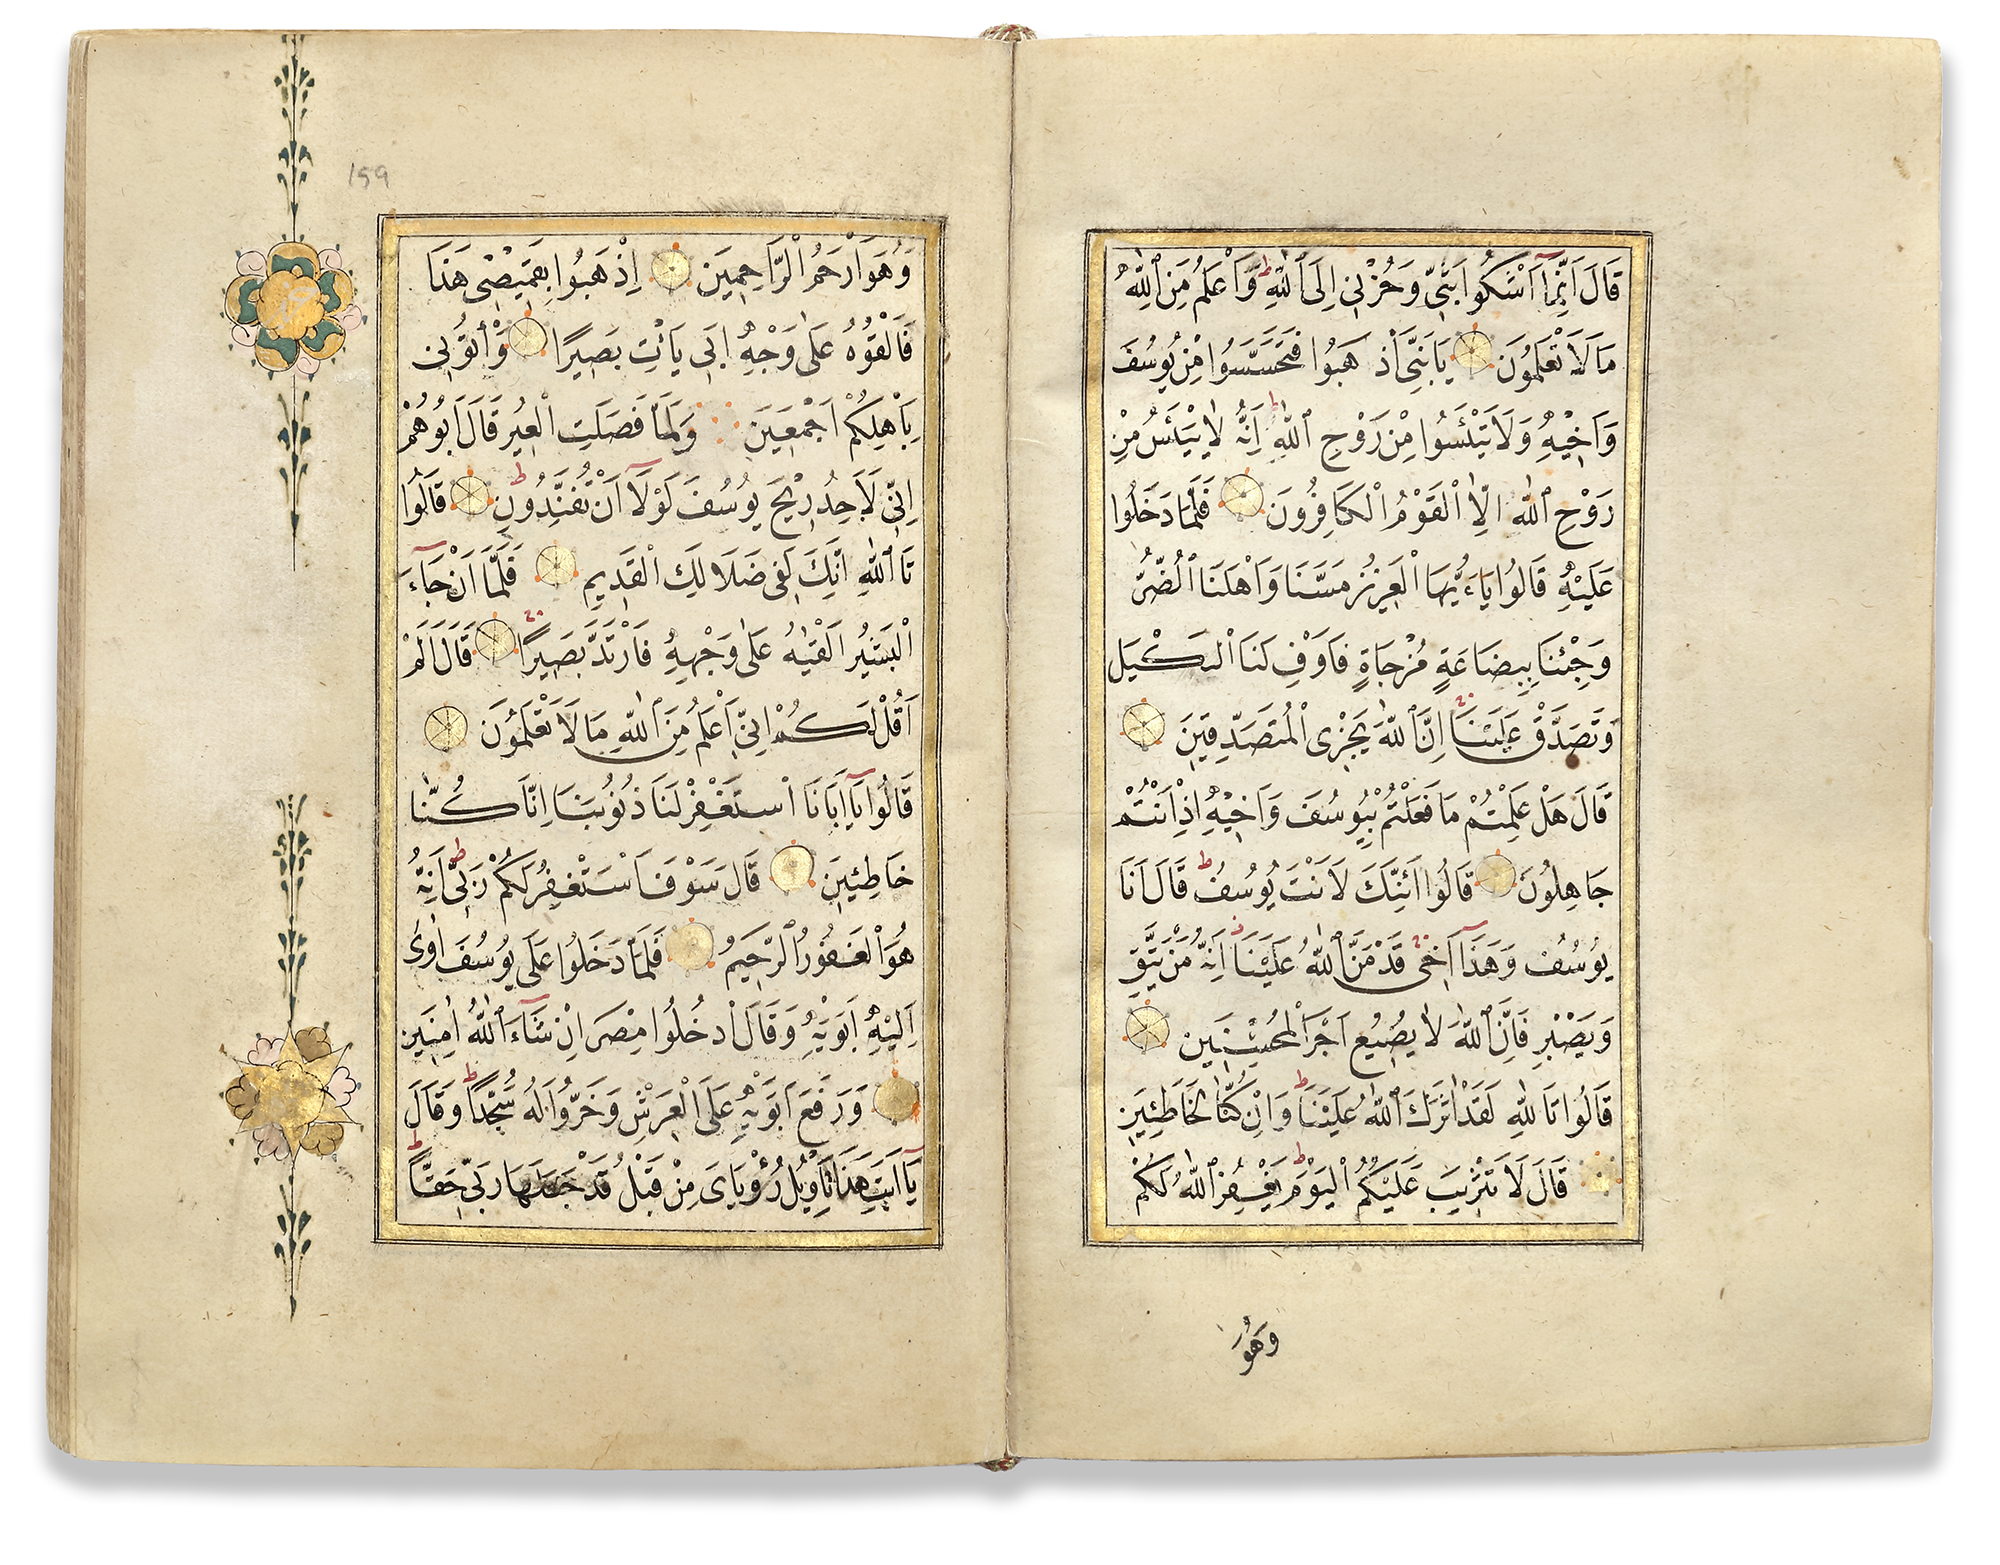 قَالَ اِنَّمَٓا اَشْكُوا بَثّٖي وَحُزْنٖي اِلَى اللّٰهِ ط وَاَعْلَمُ مِنَ اللّٰهِ
مَا لَا تَعْلَمُونَ يَا بَنِيَّ اذْهَبُوا فَتَحَسَّسُوا مِنْ يُوسُفَ
وَاَخٖيهِ وَلَا تَيْئَسُوا مِنْ رَوْحِ اللّٰهِ ط اِنَّهُ لَا يَيْئَسُ مِنْ
رَوْحِ اللّٰهِ اِلَّا الْقَوْمُ الْكَافِرُونَ فَلَمَّا دَخَلُوا
عَلَيْهِ قَالُوا يَاءَيُّهَا الْعَزٖيزُ مَسَّنَا وَاَهْلَنَا الضُّرُّ
وَجِئْنَا بِبِضَاعَةٍ مُزْجَاةٍ فَاَوْفِ لَنَا الْكَيْلَ
وَتَصَدَّقْ عَلَيْنَا اِنَّ اللّٰهَ يَجْزِى الْمُتَصَدِّقٖينَ
قَالَ هَلْ عَلِمْتُمْ مَا فَعَلْتُمْ بِيُوسُفَ وَاَخٖيهِ اِذْ اَنْتُمْ
جَاهِلُونَ قَالُوا اَئِنَّكَ لَاَنْتَ يُوسُفُ ط قَالَ اَنَا
يُوسُفُ وَهٰذَٓا اَخٖى قَدْ مَنَّ اللّٰهُ عَلَيْنَا اِنَّهُ مَنْ يَتَّقِ
وَيَصْبِرْ فَاِنَّ اللّٰهَ لَا يُضٖيعُ اَجْرَ الْمُحْسِنٖينَ
قَالُوا تَاللّٰهِ لَقَدْ اٰثَرَكَ اللّٰهُ عَلَيْنَا ط وَاِنْ كُنَّا لَخَاطِئٖينَ
قَالَ لَا تَثْرٖيبَ عَلَيْكُمُ الْيَوْمَ ط يَغْفِرُ اللّٰهُ لَكُمْ
وَهُوَ
159
وَهُوَ اَرْحَمُ الرَّاحِمٖينَ اِذْهَبُوا بِقَمٖيصٖى هٰذَا
فَاَلْقُوهُ عَلٰى وَجْهِ اَبٖى يَأْتِ بَصٖيرًا وَأْتُونٖى
بِاَهْلِكُمْ اَجْمَعٖينَ وَلَمَّا فَصَلَتِ الْعٖيرُ قَالَ اَبُوهُمْ
اِنّٖى لَاَجِدُ رٖيحَ يُوسُفَ لَوْلَٓا اَنْ تُفَنِّدُونِ ط قَالُوا
تَاللّٰهِ اِنَّكَ لَفٖى ضَلَالِكَ الْقَدٖيمِ فَلَمَّا اَنْ جَٓاءَ
الْبَشٖيرُ اَلْقٰيهُ عَلٰى وَجْهِهٖ فَارْتَدَّ بَصٖيرًا قَالَ اَلَمْ
اَقُلْ لَكُمْ اِنّٖى اَعْلَمُ مِنَ اللّٰهِ مَا لَا تَعْلَمُونَ
قَالُوا يَٓا اَبَانَا اسْتَغْفِرْ لَنَا ذُنُوبَنَا اِنَّا كُنَّا
خَاطِئٖينَ قَالَ سَوْفَ اَسْتَغْفِرُ لَكُمْ رَبّٖى ط اِنَّهُ
هُوَ الْغَفُورُ الرَّحٖيمُ فَلَمَّا دَخَلُوا عَلٰى يُوسُفَ اٰوٰى
اِلَيْهِ اَبَوَيْهِ وَقَالَ ادْخُلُوا مِصْرَ اِنْ شَٓاءَ اللّٰهُ اٰمِنٖينَ
وَرَفَعَ اَبَوَيْهِ عَلَى الْعَرْشِ وَخَرُّوا لَهُ سُجَّدًا ط وَقَالَ
يَٓا اَبَتِ هٰذَا تَاْوٖيلُ رُؤْيَاىَ مِنْ قَبْلُ قَدْ جَعَلَهَا رَبّٖى حَقًّا ط